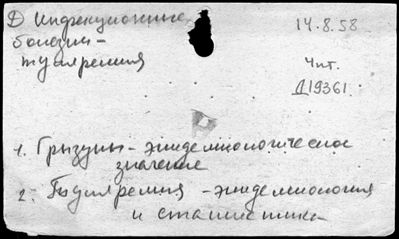 Д Инфекционные
болезни-
туляремия
14.8.58
Чит.
Д19361
1. Грызуны - эпидемиологическое
значение
2. Туляремия - эпидемиология
и статистика